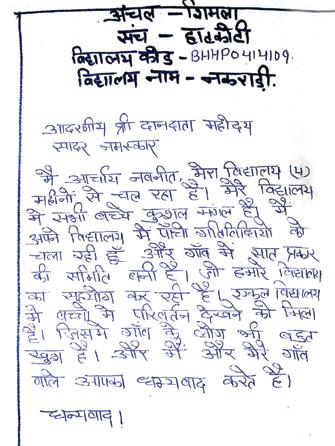 अंचल - शिमला
संच - हाटकोटी
विद्यालय कोड - BHHP0414109.
विद्यालय नाम - नकराड़ी.
आदरणीय श्री दानदाता महोदय
सादर नमस्कार
मै आर्चाय नवनीत, मेरा विद्यालय (4)
महीनों से चल रहा है। मेरे विद्यालय
में सभी बच्चे कुशल मंगल है। मैं
अपने विद्यालय में पांचो गतिविधियो को
चला रही हूँ और गाँव में सात प्रकार
की समिति बनी है। जो हमारे विद्यालय
का सहयोग कर रही है। एकल विद्यालय
में बच्चों में परिवर्तन देखने को मिला
है। जिसमे गाँव के लोग भी बहुत
खुश है। और मैं और मेरे गाँव
वाले आपका धन्यवाद करते है।
धन्यवाद।